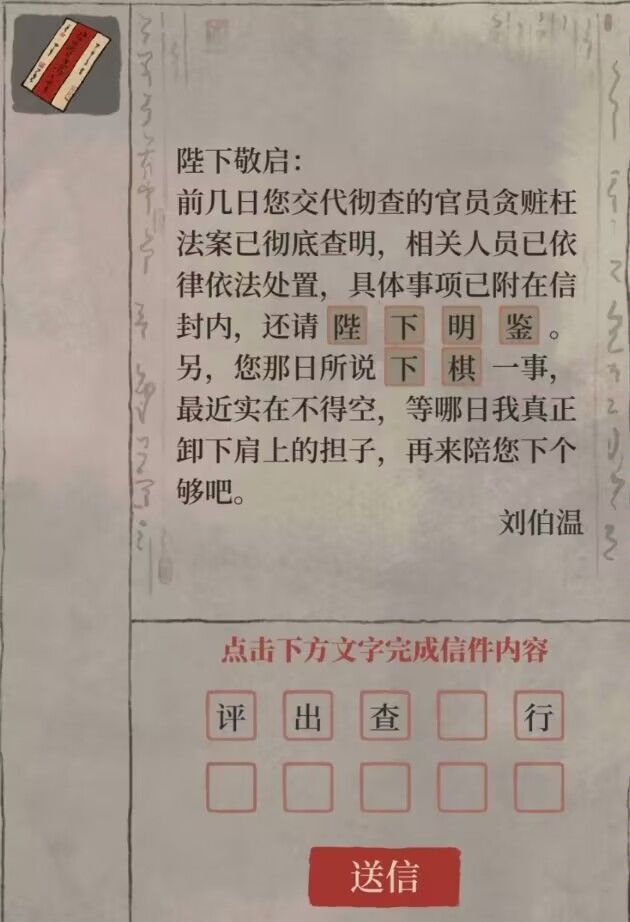 陛下敬启：
前几日您交代彻查的官员贪赃枉
法案已彻底查明，相关人员已依
律依法处置，具体事项已附在信
封内，还请陛下明鉴。
另，您那日所说下棋一事，
最近实在不得空，等哪日我真正
卸下肩上的担子，再来陪您下个
够吧。
刘伯温
点击下方文字完成信件内容
评 出 查 行
送信